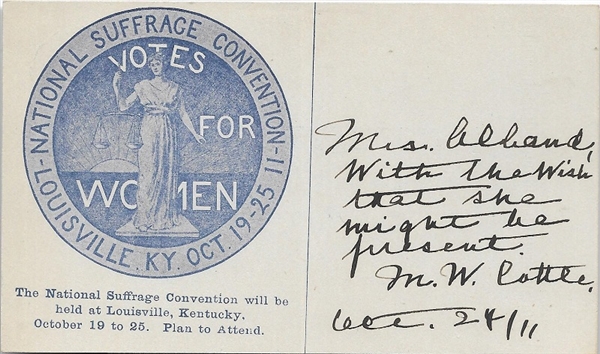 NATIONAL SUFFRAGE CONVENTION
LOUISVILLE. KY. OCT. 19-25 11
VOTES
FOR
WOMEN
The National Suffrage Convention will be
held at Louisville, Kentucky.
October 19 to 25. Plan to Attend.
Mrs.
With the wish
that she
might be
present.
M. W. Cottle.
Oct. 24/11